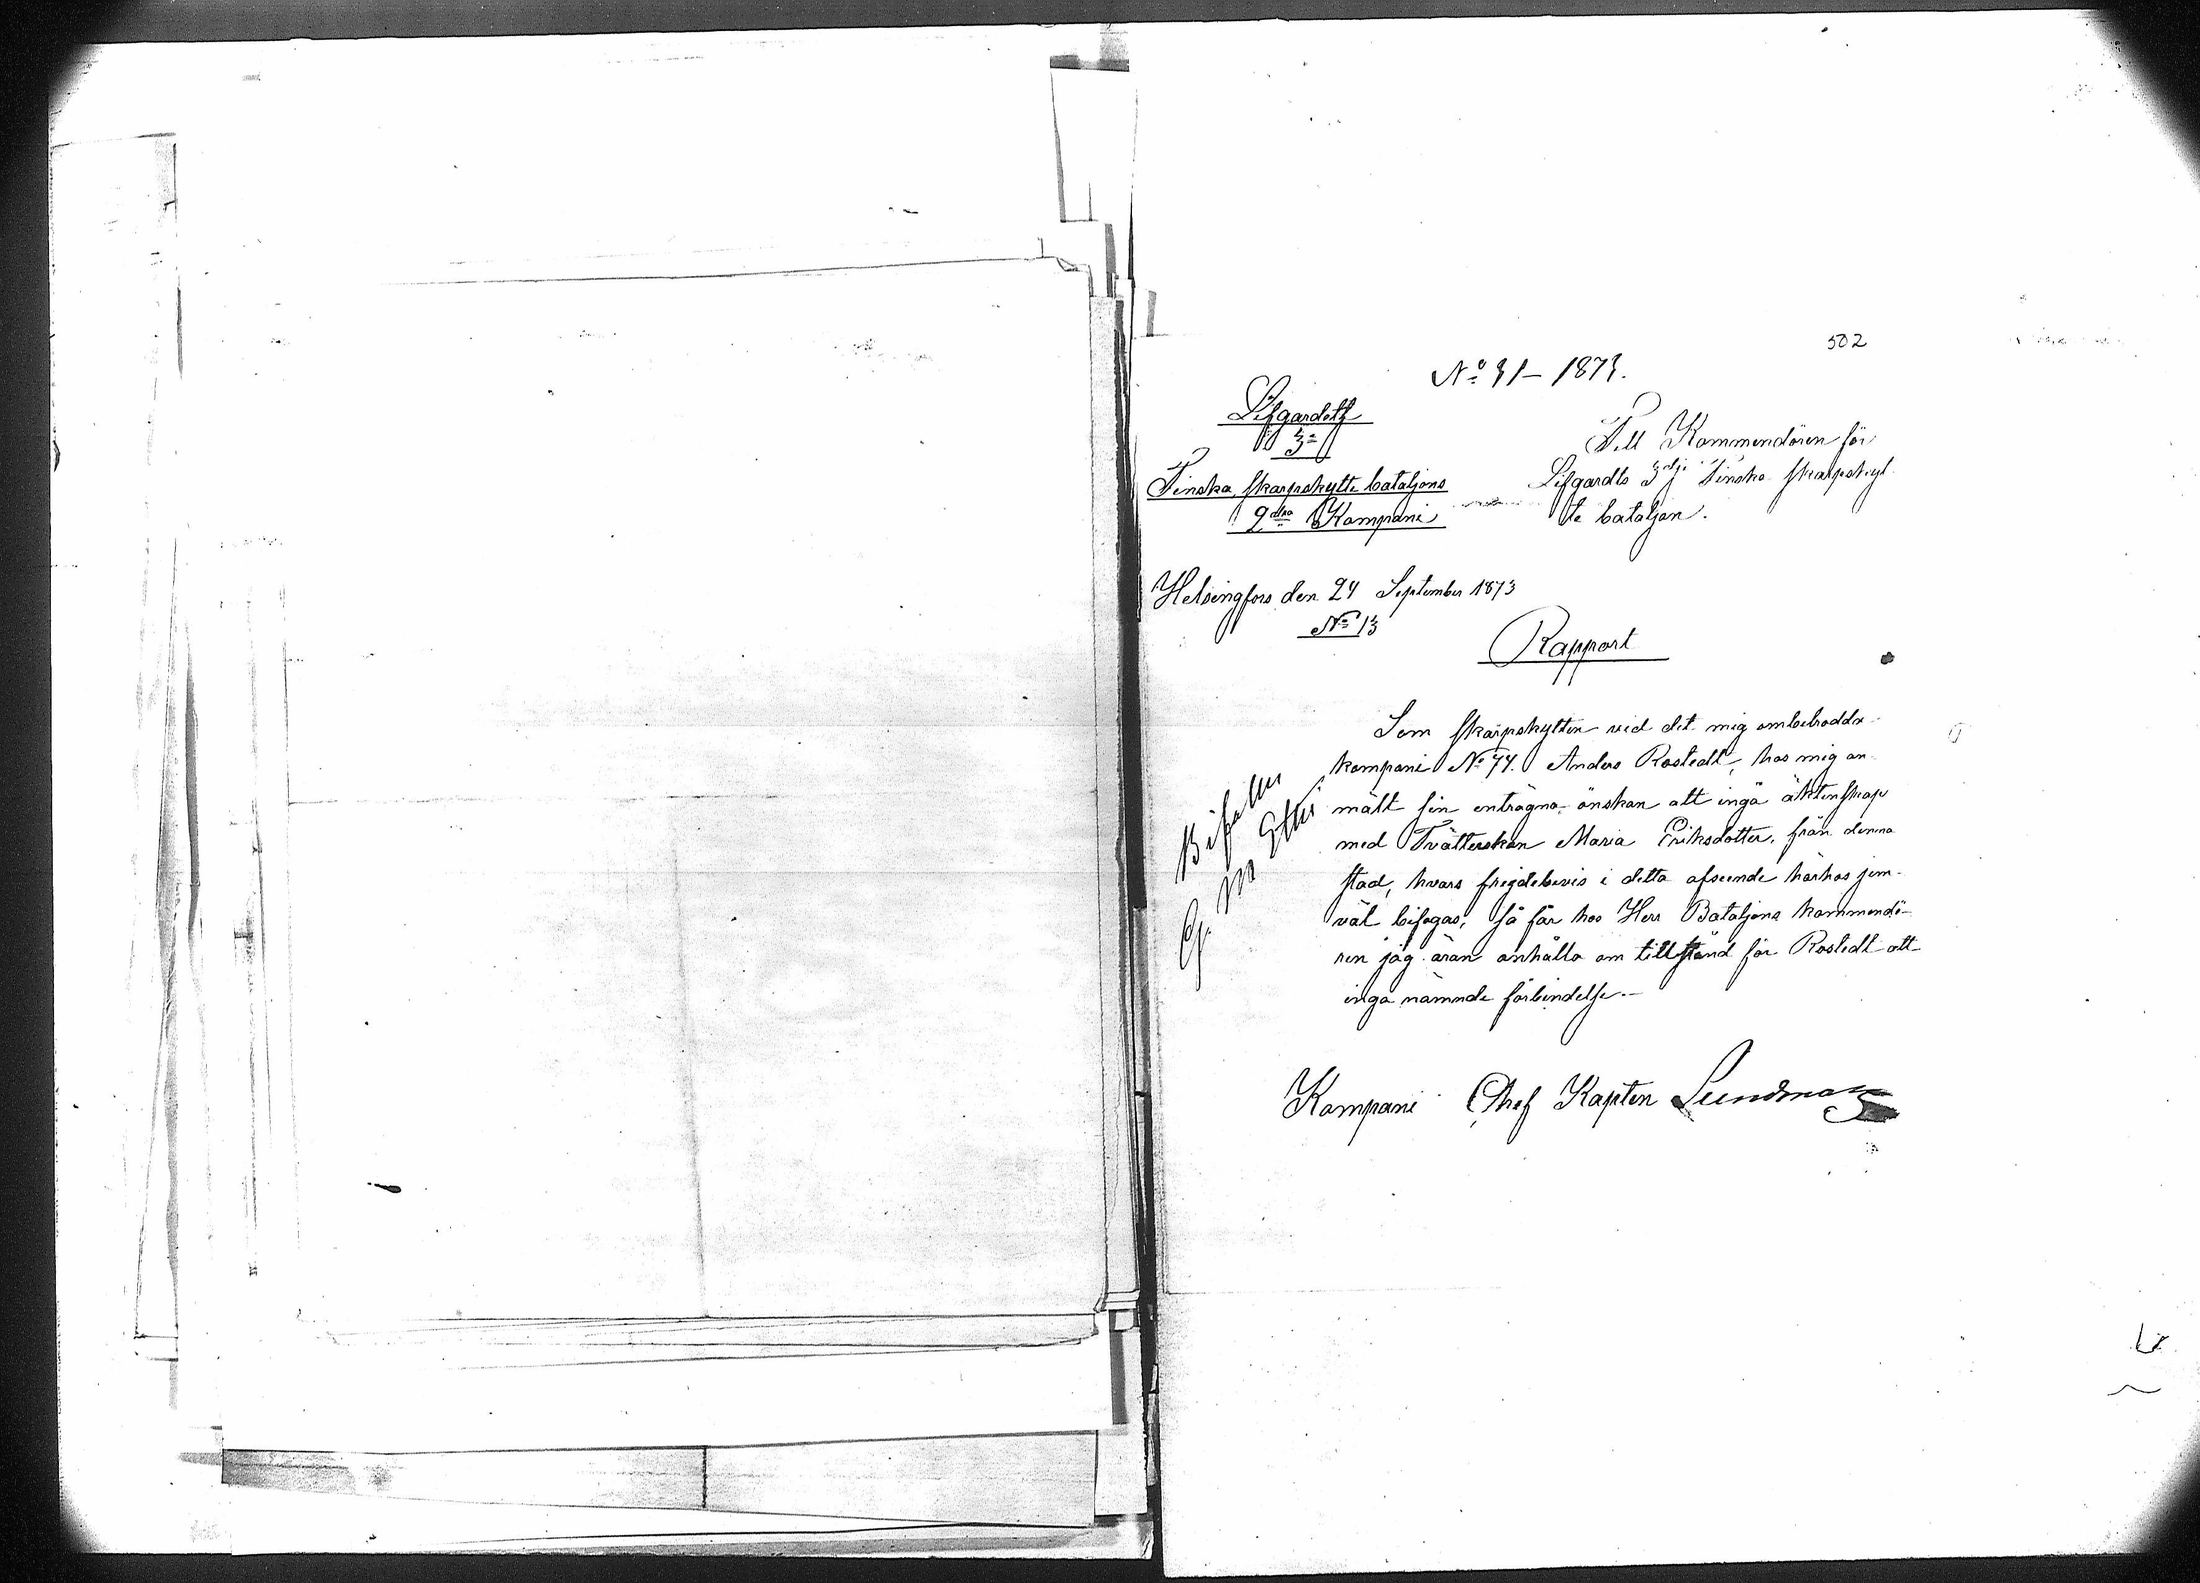 502
No 31 – 1873.
Lifgardets
3e
Finska Skarpskytte bataljons
2dra Kompani
Till Kommendören för
Lifgardets 3dje Finska Skarpskyt
te bataljon.
Helsingfors den 24 September 1873
No 13
Rapport
Som Skarpskytten vid det mig ombetrodda
kompani No 74. Anders Rostedt, hos mig an
mält sin enträgna önskan att ingå äktenskap
med Tvätterskan Maria Eriksdotter, från denna
stad, hvars frejdebevis i detta afseende härhos jem-
väl bifogas, Så får hos Herr Bataljons kommendö-
ren jag äran anhålla om tillstånd för Rostedt att
ingå nämnde förbindelse.–
Bifalles
G. M.
Kompani Chef Kapten Sundman